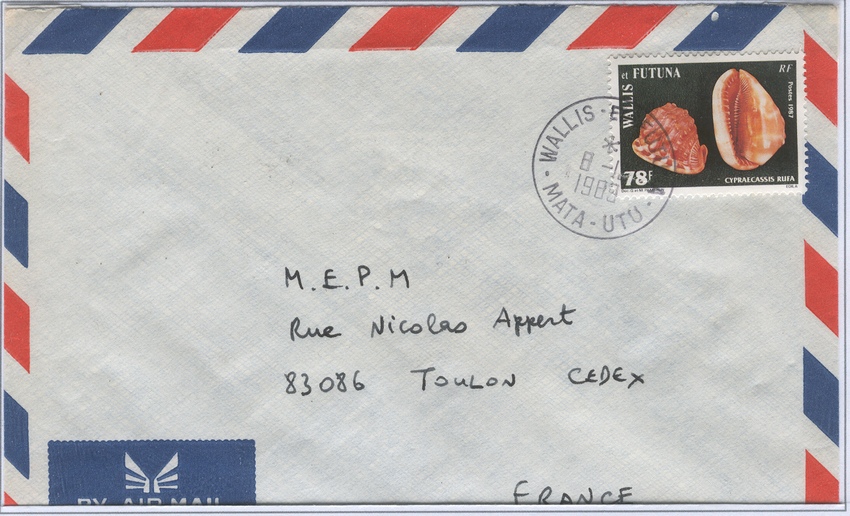 WALLIS et FUTUNA
RF
Postes 1987
78F
CYPRAECASSIS RUFA
WALLIS -
8 -1
1988
MATA-UTU
M.E.P.M
Rue Nicolas Appert
83086 TOULON CEDEX
FRANCE
BY AIR MAIL